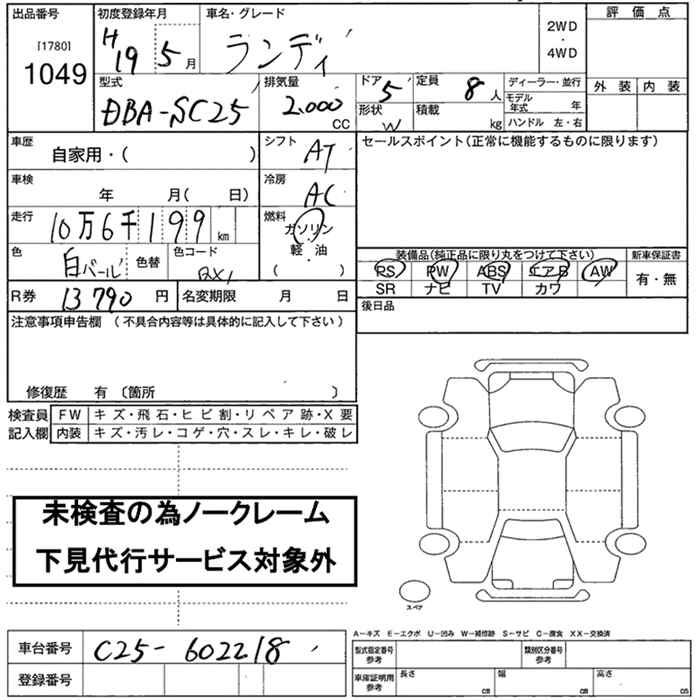 出品番号 初度登録年月 車名・グレード 評価点
[1780] H19 5月 ランディ 2WD・4WD
1049
型式 排気量 ドア 定員 ディーラー・並行 外装 内装
DBA-SC25 2.000 CC 5 8人 モデル年式 年
形状 W 積載 kg ハンドル 左・右
車歴 自家用・( ) シフト AT セールスポイント(正常に機能するものに限ります)
車検 年 月( 日) 冷房 AC
走行 10万6千199km 燃料 ガソリン・軽油・( )
色 白パール 色替 色コード QX1 装備品(純正品に限り丸をつけて下さい) 新車保証書
PS PW ABS エアB AW 有・無
SR ナビ TV カワ
R券 13790円 名変期限 月 日 後日品
注意事項申告欄(不具合内容等は具体的に記入して下さい)
修復歴 有〔箇所 〕
検査員 FW キズ・飛石・ヒビ割・リペア跡・X要
記入欄 内装 キズ・汚レ・コゲ・穴・スレ・キレ・破レ
未検査の為ノークレーム
下見代行サービス対象外
スペア
A-キズ E-エクボ U-凹み W-補修跡 S-サビ C-腐食 XX-交換済
車台番号 C25-602218 型式指定番号 参考 類別区分番号 参考
登録番号 車庫証明用 参考 長さ cm 幅 cm 高さ cm